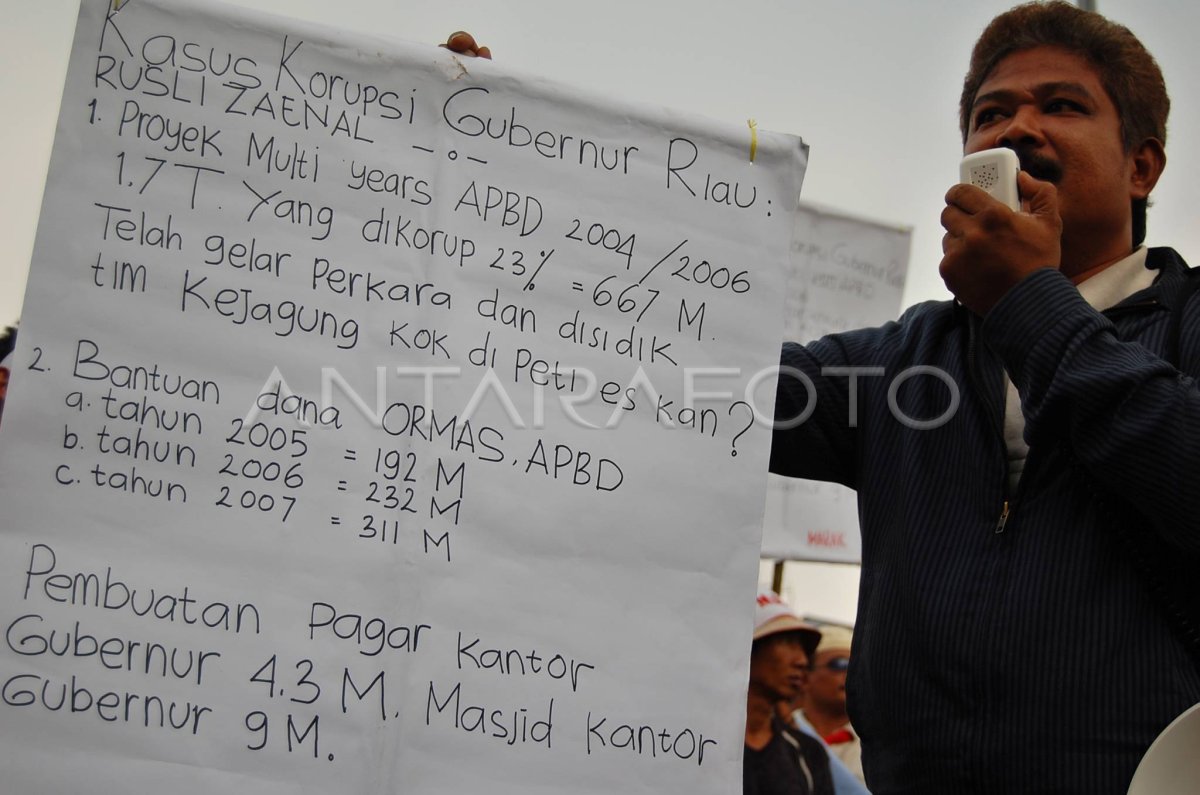 Kasus Korupsi Gubernur Riau :
RUSLI ZAENAL -.-
1. Proyek Multi years APBD 2004/2006
1.7 T. Yang dikorup 23% = 667 M.
Telah gelar Perkara dan disidik
tim Kejagung kok di Peti es kan?
2. Bantuan dana ORMAS, APBD
a. tahun 2005 = 192 M
b. tahun 2006 = 232 M
c. tahun 2007 = 311 M
Pembuatan Pagar Kantor
Gubernur 4.3 M. Masjid Kantor
Gubernur 9 M.
ANTARAFOTO